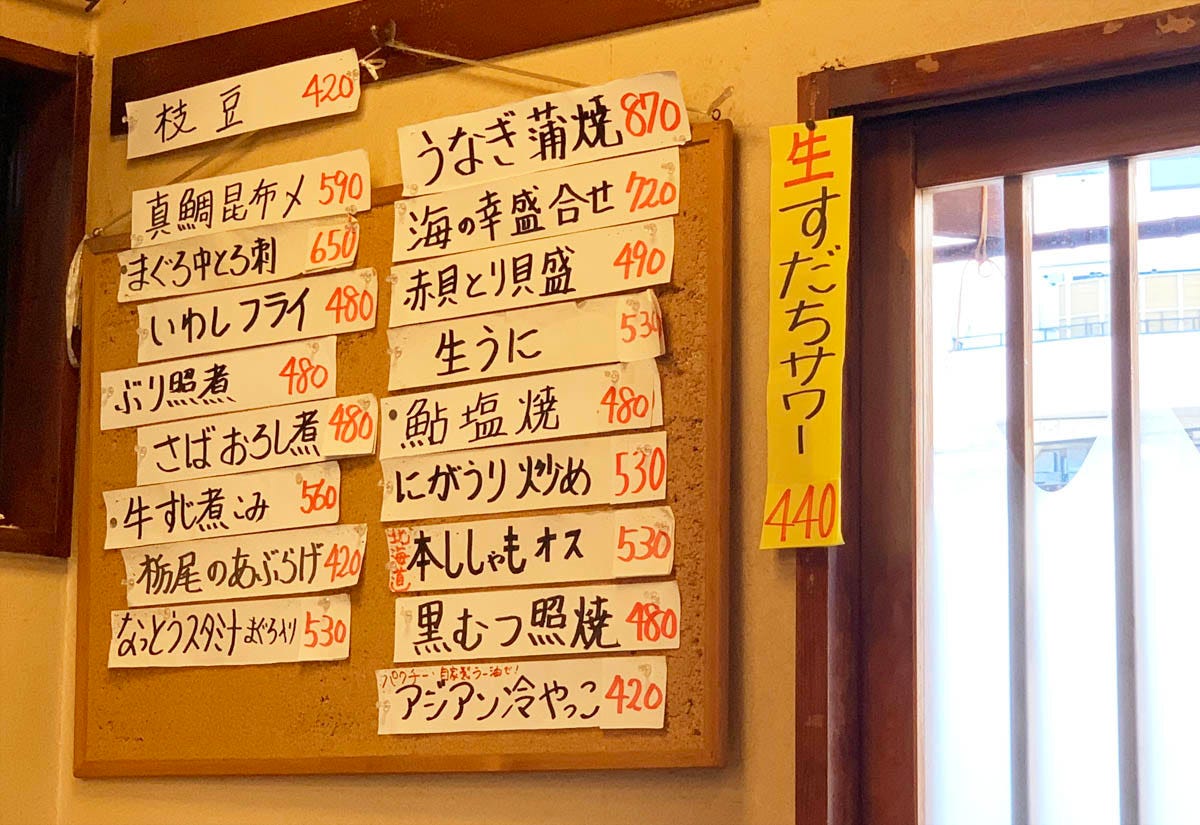 枝豆 420
真鯛昆布〆 590
まぐろ中とろ刺 650
いわしフライ 480
ぶり照煮 480
さばおろし煮 480
牛すじ煮こみ 560
栃尾のあぶらげ 420
なっとうスタミ汁 まぐろ入り 530
うなぎ蒲焼 870
海の幸盛合せ 720
赤貝とり貝盛 490
生うに 530
鮎塩焼 480
にがうり炒め 530
北海道 本ししゃもオス 530
黒むつ照焼 480
パクチー・自家製ラー油で!
アジアン冷やっこ 420
生すだちサワー 440